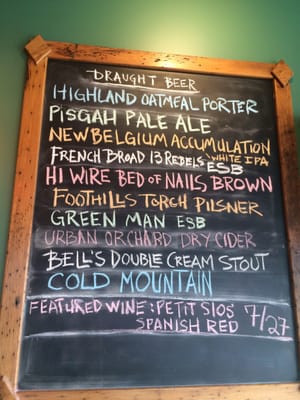 DRAUGHT BEER
HIGHLAND OATMEAL PORTER
PISGAH PALE ALE
NEW BELGIUM ACCUMULATION
WHITE IPA
FRENCH BROAD 13 REBELS ESB
HI WIRE BED OF NAILS BROWN
FOOTHILLS TORCH PILSNER
GREEN MAN ESB
URBAN ORCHARD DRY CIDER
BELL'S DOUBLE CREAM STOUT
COLD MOUNTAIN
FEATURED WINE: PETIT SIOS 7/27
SPANISH RED